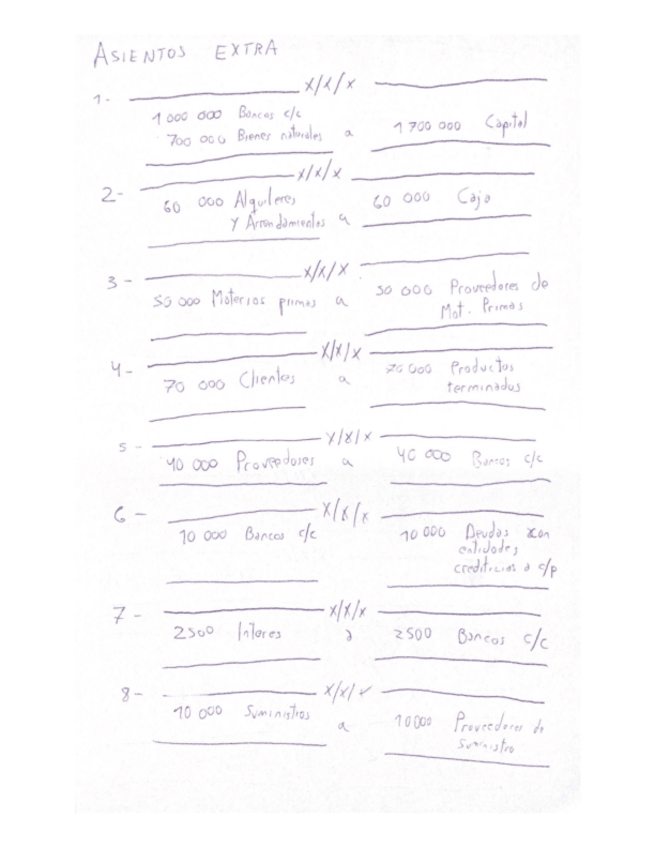 ASIENTOS EXTRA
1- x/x/x
1 000 000 Bancos c/c
700 000 Bienes naturales a 1 700 000 Capital
2- x/x/x
60 000 Alquileres 60 000 Caja
y Arrendamientos a
3- x/x/x
50 000 Materias primas a 50 000 Proveedores de
Mat. Primas
4- x/x/x
70 000 Clientes a 70 000 Productos
terminados
5- x/x/x
40 000 Proveedores a 40 000 Bancos c/c
6- x/x/x
10 000 Bancos c/c 10 000 Deudas con
entidades
crediticias a c/p
7- x/x/x
2500 Interes a 2500 Bancos c/c
8- x/x/x
10 000 Suministros a 10000 Proveedores de
Suministro